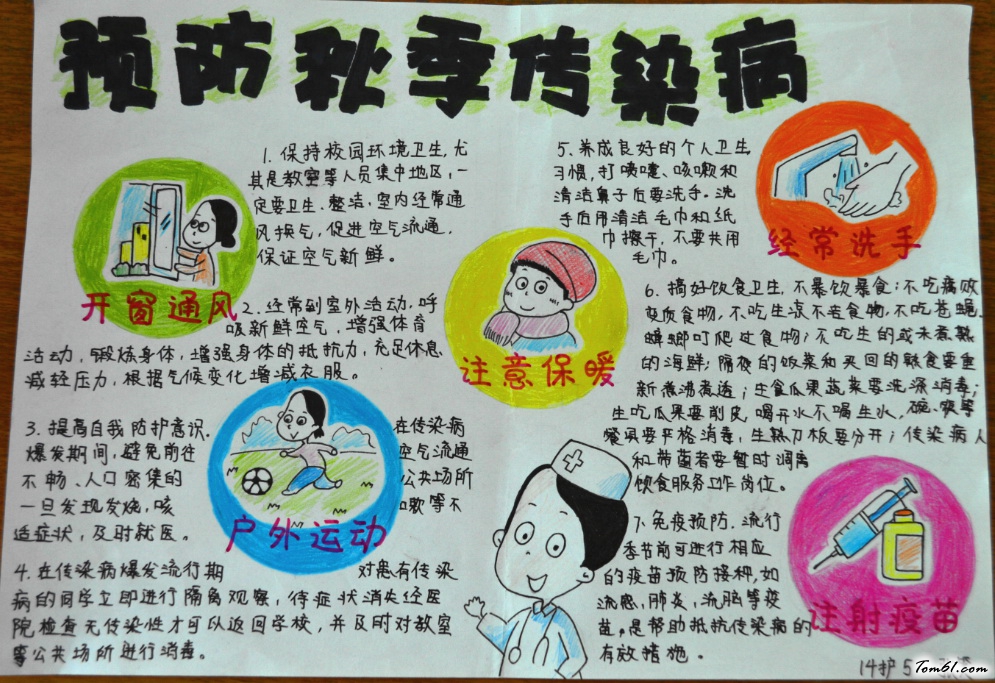 预防秋季传染病
1. 保持校园环境卫生,尤
其是教室等人员集中地区,一
定要卫生.整洁,室内经常通
风换气,促进空气流通,
保证空气新鲜。
开窗通风
2. 经常到室外活动,呼
吸新鲜空气,增强体育
活动,锻炼身体,增强身体的抵抗力,充足休息,
减轻压力,根据气候变化增减衣服。
3. 提高自我防护意识.在传染病
爆发期间,避免前往空气流通
不畅、人口密集的公共场所
一旦发现发烧,咳嗽等不
适症状,及时就医。
户外运动
4. 在传染病爆发流行期对患有传染
病的同学立即进行隔离观察,待症状消失经医
院检查无传染性才可以返回学校,并及时对教室
等公共场所进行消毒。
注意保暖
5. 养成良好的个人卫生
习惯,打喷嚏、咳嗽和
清洁鼻子后要洗手。洗
手后用清洁毛巾和纸
巾擦干,不要共用
毛巾。
经常洗手
6. 搞好饮食卫生,不暴饮暴食;不吃腐败
变质食物,不吃生凉不苦食物,不吃苍蝇、
蟑螂叮爬过食物;不吃生的或未煮熟
的海鲜;隔夜的饭菜和买回的熟食要重
新煮沸煮透;生食瓜果蔬菜要洗涤消毒;
生吃瓜果要削皮,喝开水不喝生水,碗、筷等
餐具要严格消毒,生熟刀板要分开;传染病人
和带菌者要暂时调离
饮食服务工作岗位。
7. 免疫预防.流行
季节前可进行相应
的疫苗预防接种,如
流感,肺炎,流脑等疫
苗,是帮助抵抗传染病的
有效措施。
注射疫苗
14护5
Tom61.com